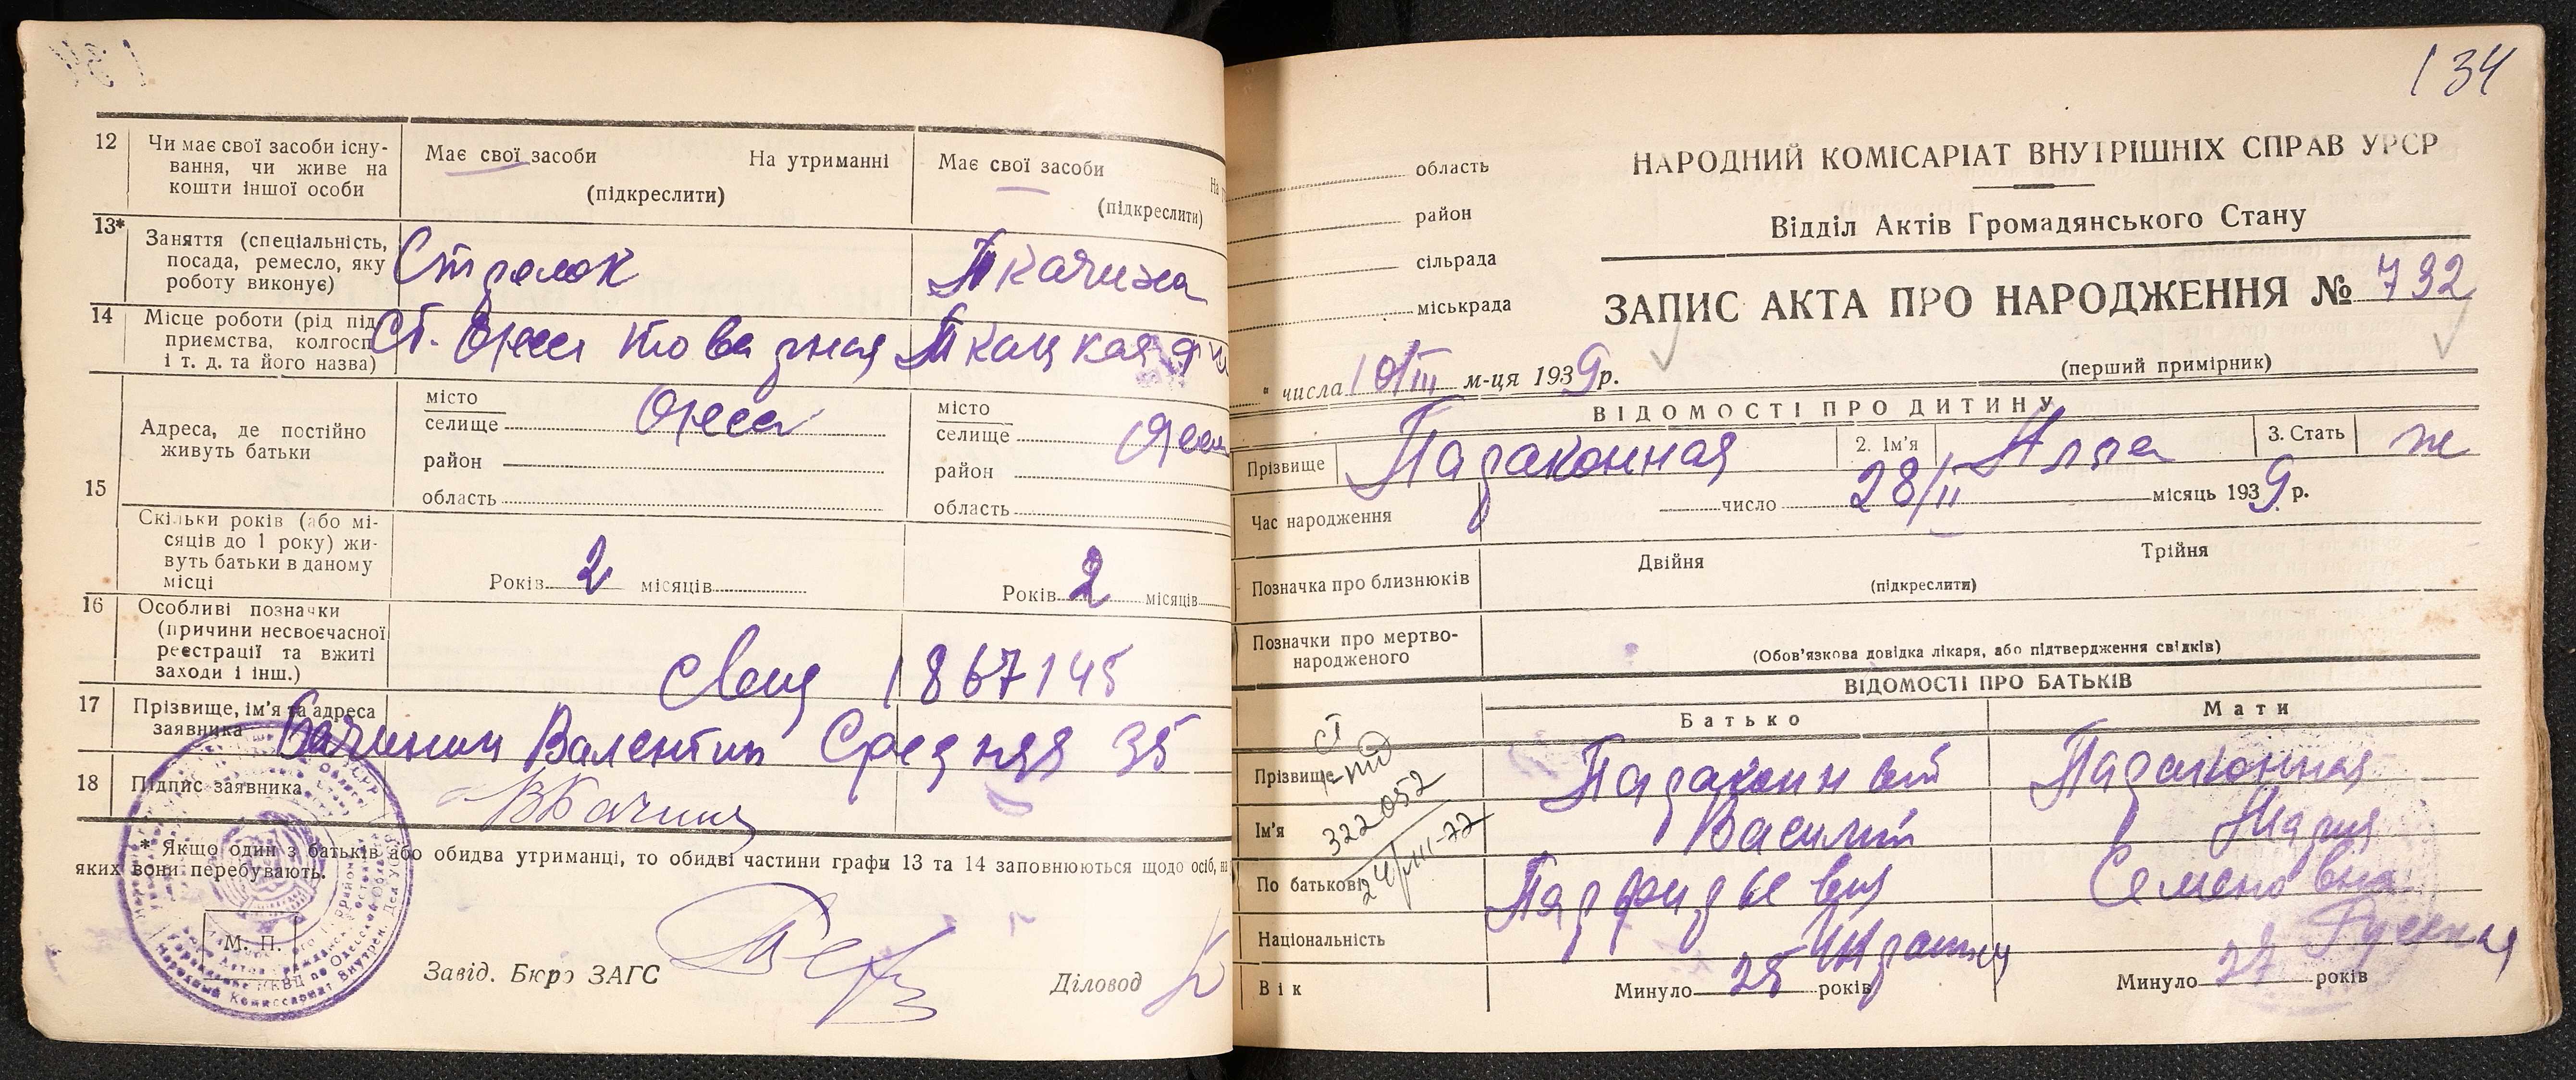 12 Чи має свої засоби існування, чи живе на кошти іншої особи
Має свої засоби На утриманні
(підкреслити)
Має свої засоби
(підкреслити)
13* Заняття (спеціальність, посада, ремесло, яку роботу виконує)
Стрелок
Ткачиха
14 Місце роботи (рід підприємства, колгосп і т. д. та його назва)
Ст. Одесса товарная
Ткацкая
15 Адреса, де постійно живуть батьки
місто
селище Одесса
район
область
місто
селище Одесса
район
область
Скільки років (або місяців до 1 року) живуть батьки в даному місці
Років 2 місяців
Років 2 місяців
16 Особливі позначки
(причини несвоєчасної
реєстрації та вжиті
заходи і інш.)
1867145
17 Прізвище, ім'я та адреса
заявника Бачинин Валентин Средняя 35
18 Підпис заявника
* Якщо один з батьків або обидва утриманці, то обидві частини графи 13 та 14 заповнюються щодо осіб, на
яких вони перебувають.
М. П.
Завід. Бюро ЗАГС
Діловод
134
область
район
сільрада
міськрада
НАРОДНИЙ КОМІСАРІАТ ВНУТРІШНІХ СПРАВ УРСР
Відділ Актів Громадянського Стану
ЗАПИС АКТА ПРО НАРОДЖЕННЯ № 732
(перший примірник)
" числа 10/III м-ця 1939 р.
ВІДОМОСТІ ПРО ДИТИНУ
Прізвище Параконная 2. Ім'я Алла 3. Стать ж
Час народження число 28/II місяць 1939 р.
Позначка про близнюків Двійня Трійня
(підкреслити)
Позначки про мертвонародженого
(Обов'язкова довідка лікаря, або підтвердження свідків)
ВІДОМОСТІ ПРО БАТЬКІВ
Батько Мати
Прізвище Параконный Параконная
Ім'я Василий Мария
По батькові Парфирьевич Семеновна
Національність Украинец Русская
Вік Минуло 25 років Минуло 27 років
322052
24/VIII-72